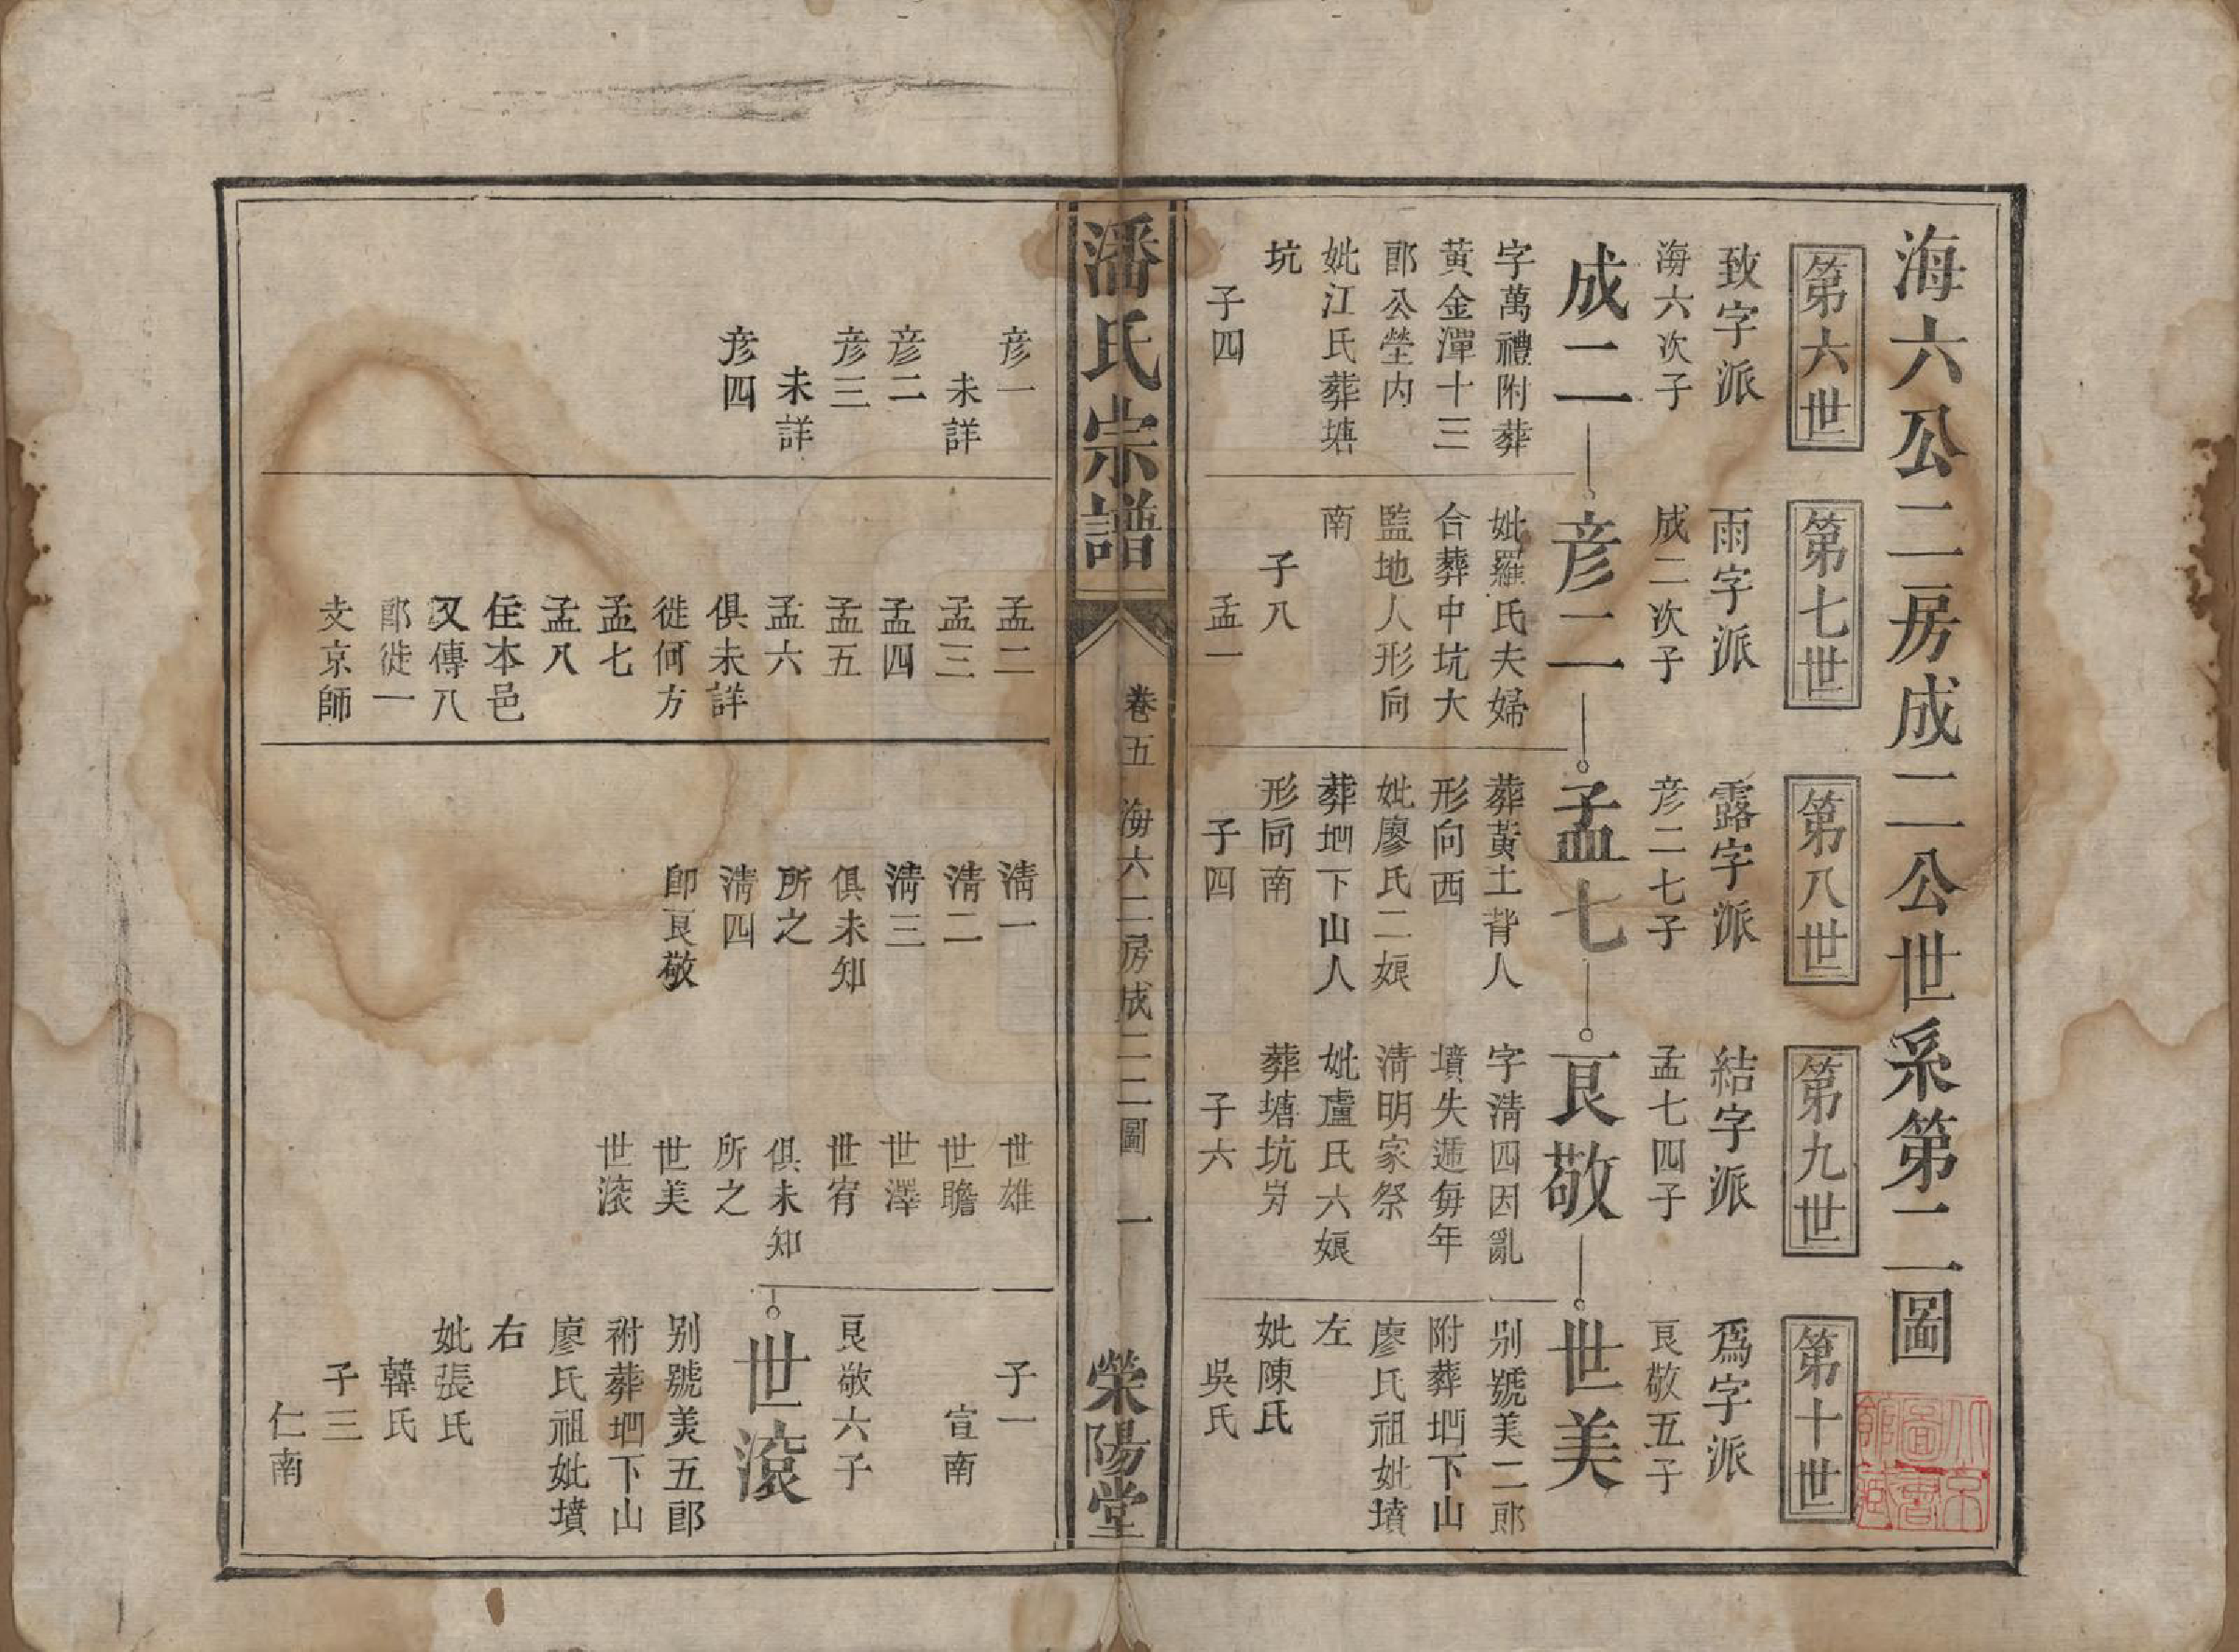 海六公二房成二公世系第二圖
第六世
致字派
海六次子
成二
字萬禮附葬
黃金潭十三
郎公塋內
妣江氏葬塘
坑
子四
第七世
雨字派
成二次子
彦二
妣羅氏夫婦
合葬中坑大
監地人形向
南
子八
孟一
第八世
露字派
彦二七子
孟七
葬黃土背人
形向西
妣廖氏二娘
葬垇下山人
形向南
子四
第九世
結字派
孟七四子
艮敬
字淸四因亂
墳失遞每年
淸明家祭
妣盧氏六娘
葬塘坑屴
子六
第十世
爲字派
艮敬五子
世美
别號美二郎
附葬垇下山
廖氏祖妣墳
左
妣陳氏
吳氏
潘氏宗譜
卷五
海六二房成二二圖
一
榮陽堂
彦一
未詳
彦二
彦三
未詳
彦四
孟二
孟三
孟四
孟五
孟六
俱未詳
徙何方
孟七
孟八
住本邑
又傳八
郎徙一
支京師
淸一
淸二
淸三
俱未知
所之
淸四
卽艮敬
世雄
世瞻
世澤
世宥
俱未知
所之
世美
世滚
子一
宣南
艮敬六子
世滚
别號美五郎
祔葬垇下山
廖氏祖妣墳
右
妣張氏
韓氏
子三
仁南